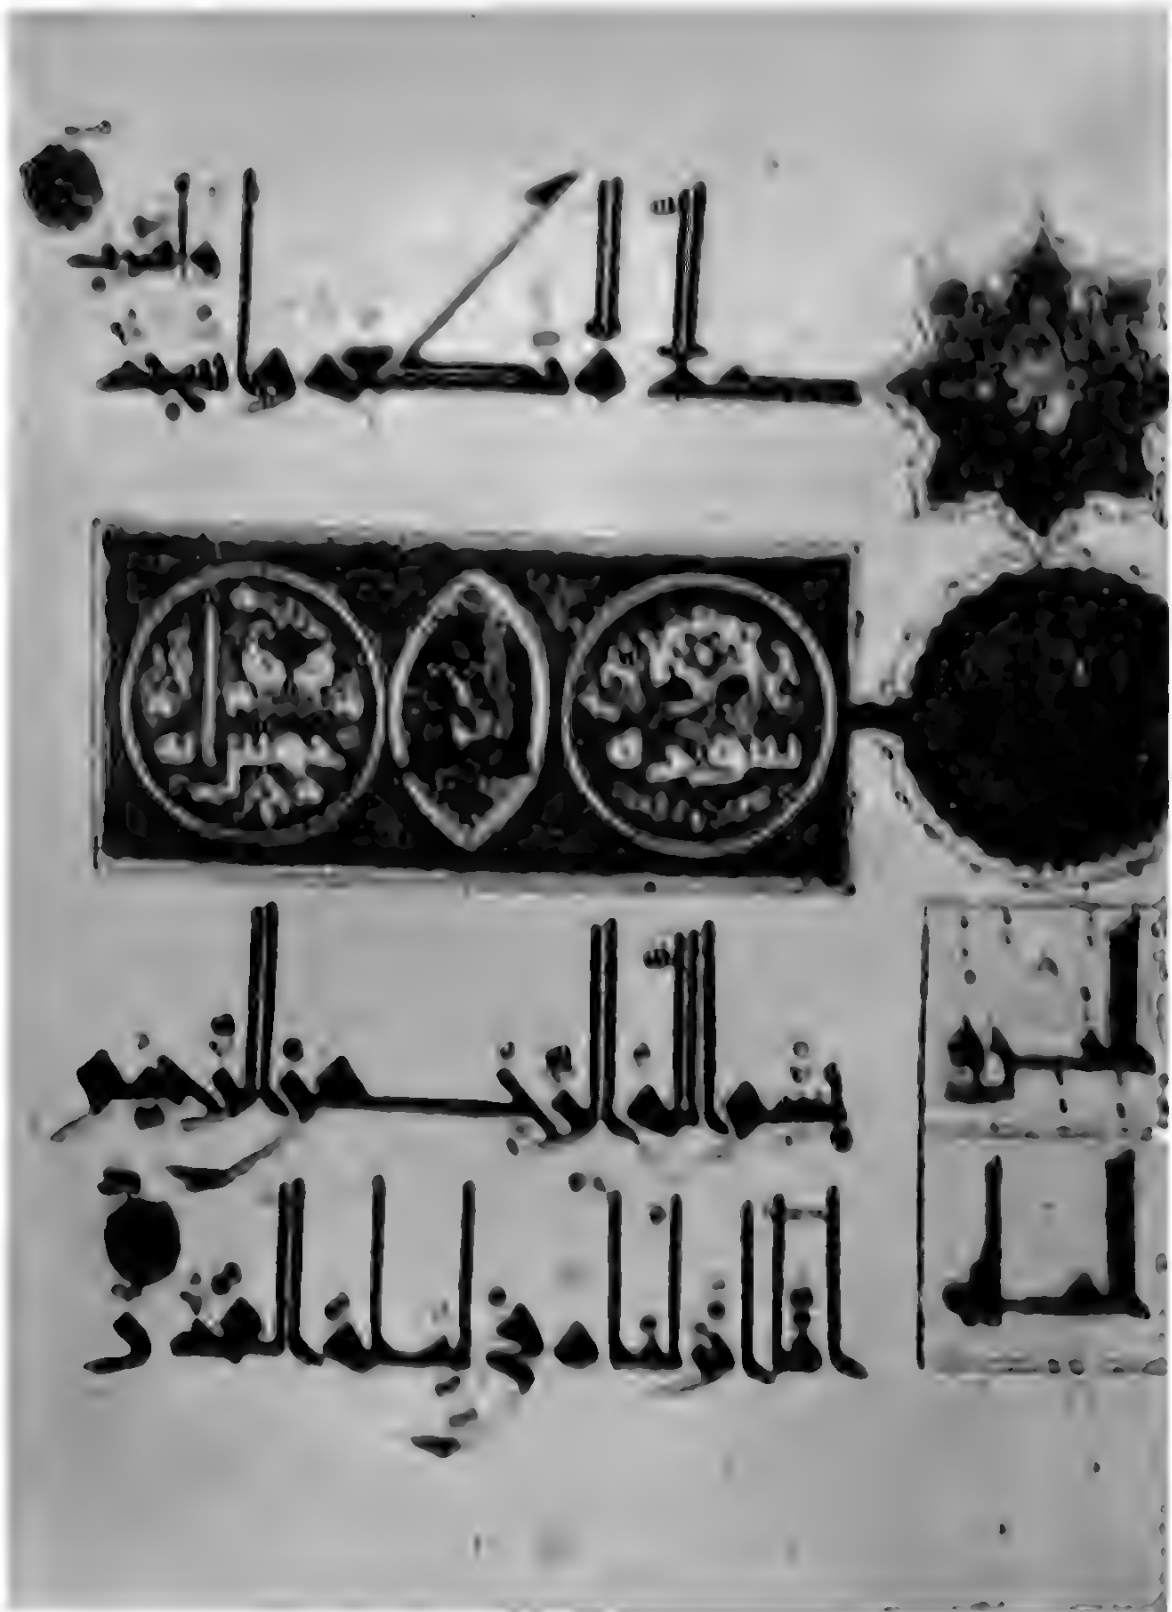 كلا لا تطعه واسجد واقترب
سورة خمس اية
بسم الله الرحمن الرحيم
انا انزلناه في ليلة القدر